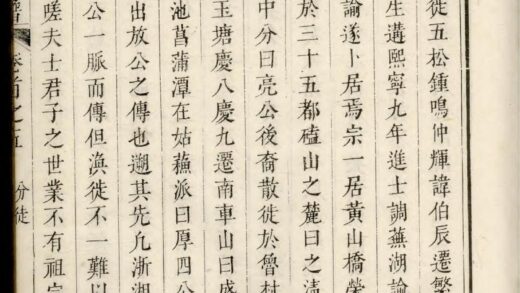 徙五松鍾鳴仲輝諱伯辰遷繁
生遘熙寧九年進士調蕪湖諭
諭遂卜居焉宗一居黃山橋榮
於三十五都磕山之麓曰之濤
中分曰亮公後裔散徙於魯村
玉塘慶八慶九遷南車山曰盛
池菖蒲潭在姑蘓派曰厚四公
出放公之傳也遡其先凢浙湖
公一脈而傳但渙徙不一難以
嗟夫士君子之世業不有祖宗
卷之五
分徙